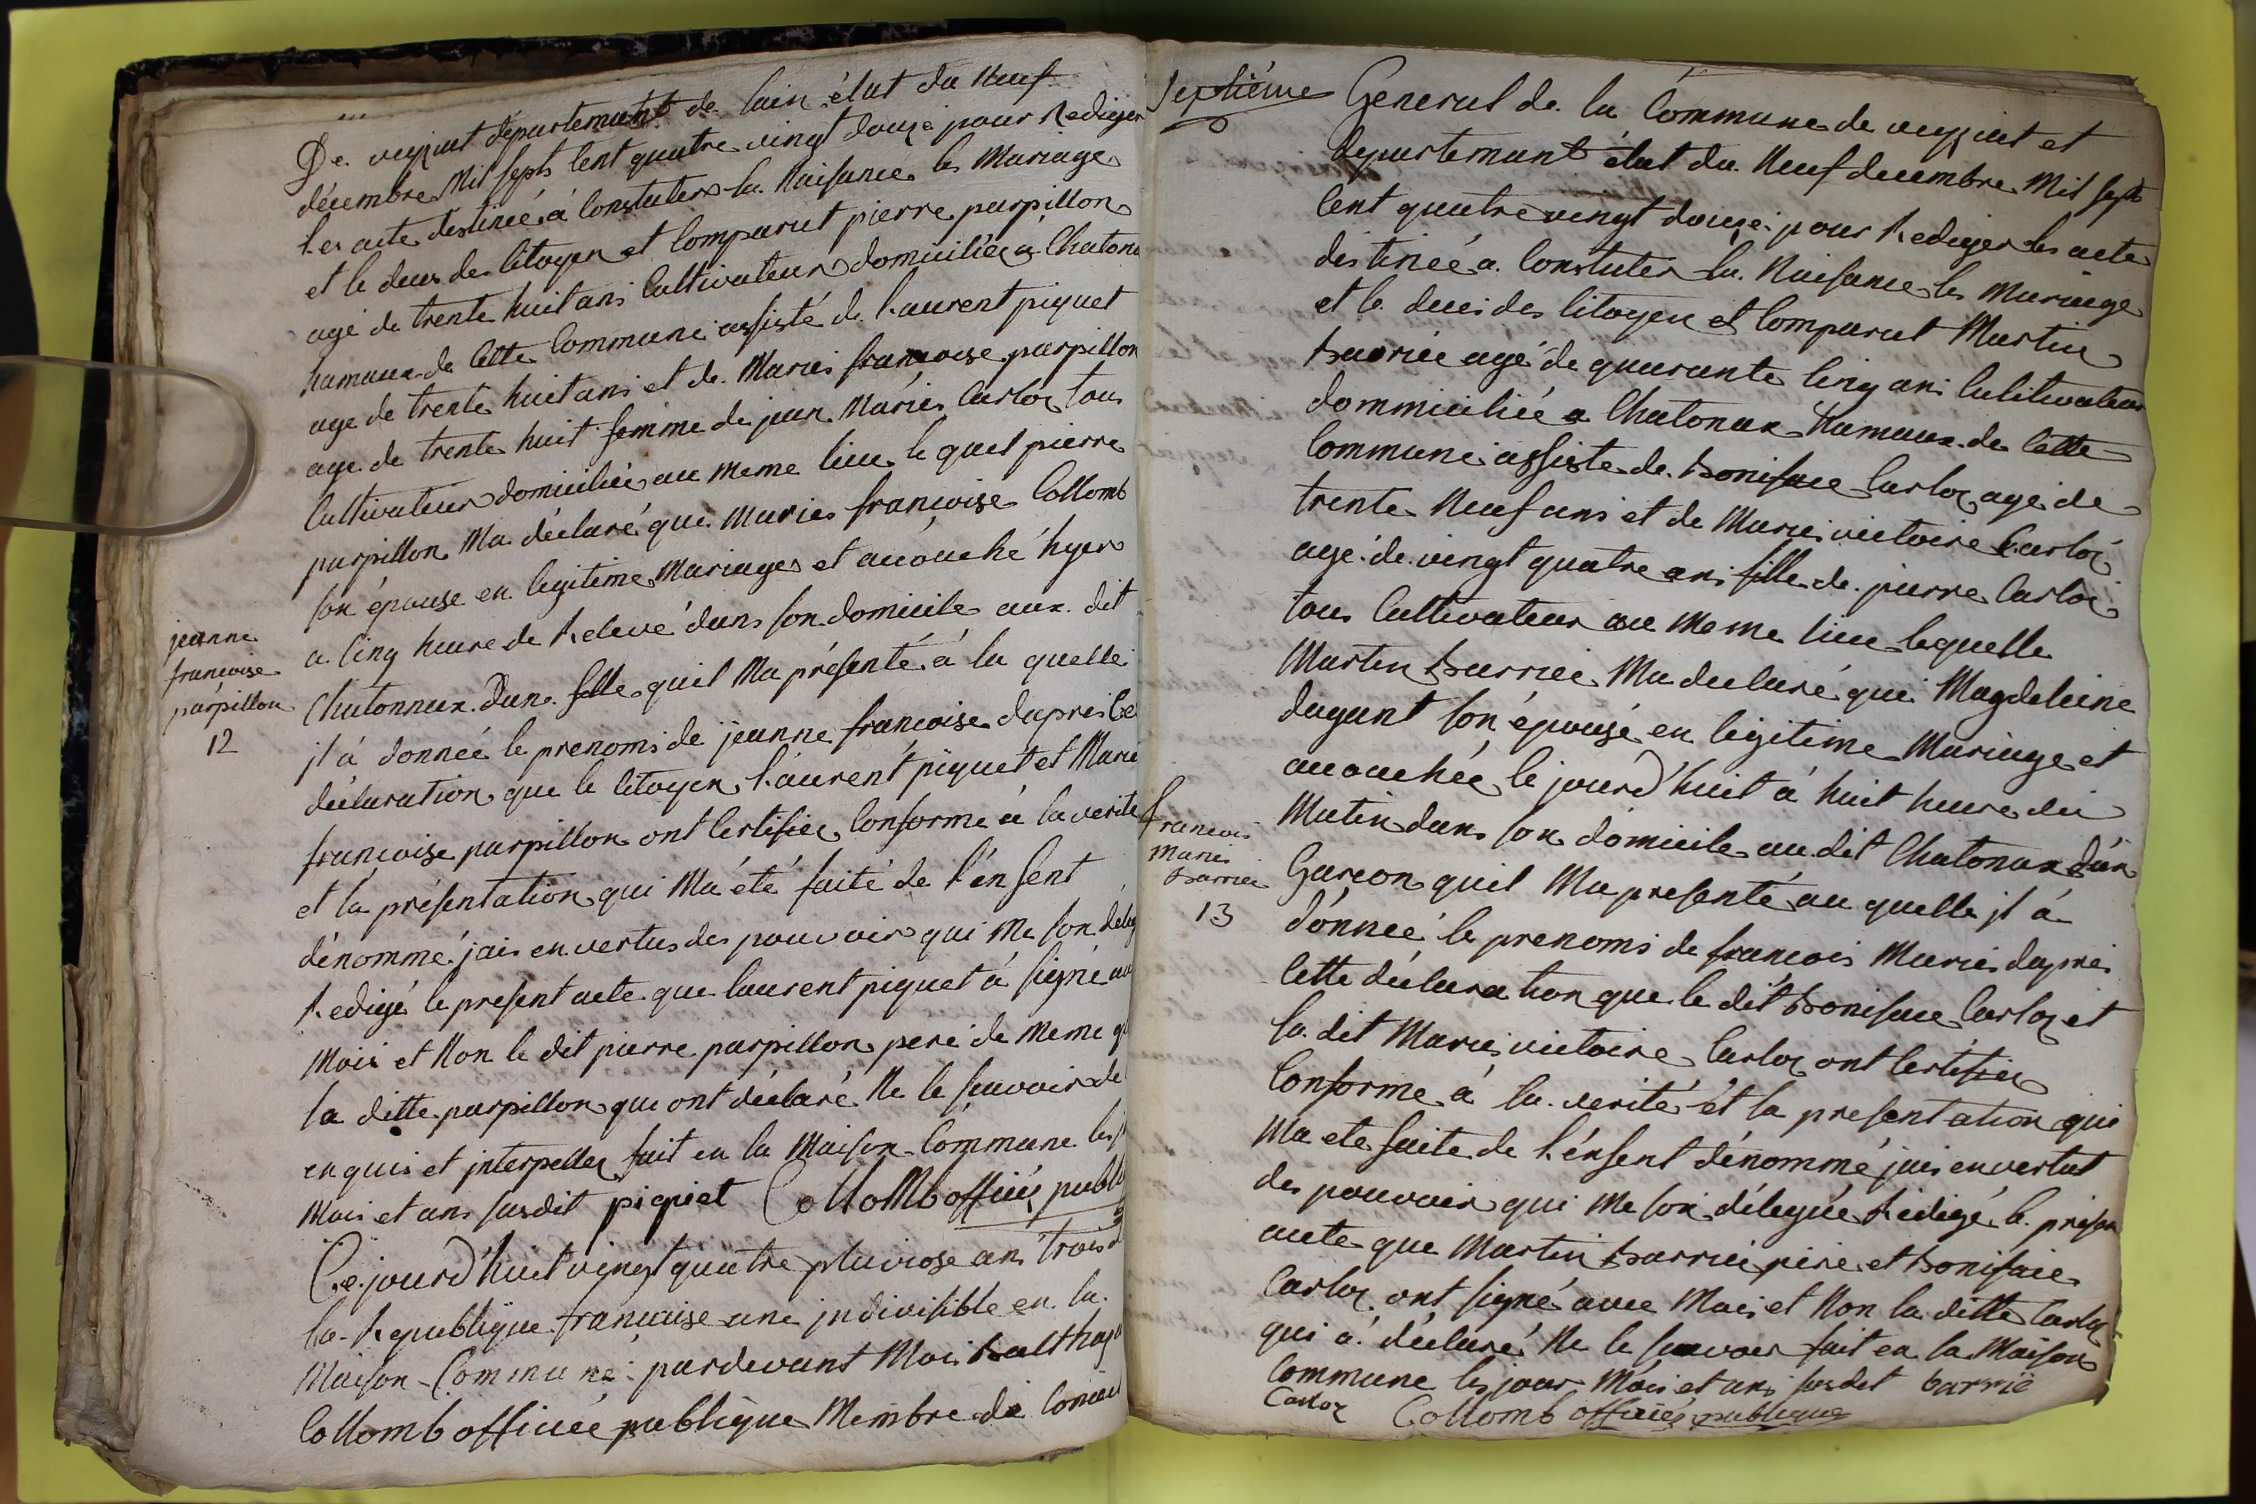 De veyziat département de lain élut du Neuf
décembre Mil septs Cent quatre vingt douze pour Rediger
les acte destinée à Constuter la Naisance les Mariage
et le deces des Citoyen et Comparut pierre parpillon
agé de trente huit ans Cultivateur domiciliée à Chatona
hamaux de Cette Commune assisté de Laurent piquet
age de trente huit ans et de Maries françoise parpillon
age de trente huit femme de jean Maries Carloz tous
Cultivateur domiciliée au meme lieu le quel pierre
parpillon Ma déclaré que Maries françoise Collomb
son épouse en legitime Mariage et acouché hyer
a Cinq heure de Relevé dans son domicile aux dit
jeanne
françoise
parpillon
12
Chatonnax Dune fille quil Ma présenté à la quelle
jl à donnée le prenoms de jeanne francoise dapres Ce
déclaration que le Citoyen Laurent piquet et Marie
françoise parpillon ont Certifiez Conforme à la verite
et la présentation qui Ma été faite de l'énfent
dénommé jais en vertus des pouvoir qui Me son déleg
Redigé le present acte que laurent piquet à signé av
Mois et Non le dit pierre parpillon pere de Meme q
la ditte parpillon qui ont déclaré Ne le sçavoir de
enquis et jnterpellez fait en la Maison Commune les j
Mois et ans susdit piqiet Collomb offiiés publi
Ce jourd'huit vingt quatre pluviose ans trois d
la Republique française une jndivisible en la
Maison Commune pardevant Mois Balthaza
Collomb officiée publique Membre du Conseil
septiéme
General de la Commune de veyziat et
departemant élut du Neuf decembre Mil septs
Cent quatre vingt douze pour Rediger les acte
destinée a Constuter la Naisance les Mariage
et le deces des Citoyen et Comparut Martin
Barriée agé de quarante Cinq ans Cultivateur
dommiciliée a Chatonax hamaux de Cette
Commune assiste de Boniface Carloz agé de
trente Neuf ans et de Marie victoire Carloz
agé de vingt quatre ans fille de pierre Carloz
tous Cultivateur au Meme lieu lequelle
Martin Barriée Ma declaré que Magdeleine
dagant son épouse en legitime Mariage et
acouchée le jourd'huit à huit heure du
Matin dans son domicile au dit Chatonax d'ún
francois
Marie
Barrier
13
Garcon quil Ma presenté au quelle jl à
dónnée le prenoms de francois Maries dapres
Cette déclaration que le dit Boniface Carloz et
la dit Maries victoire Carloz ont Certifiez
Conforme à la verité et la presentation qui
Ma ete faite de l'énfent dénommé jais en vertut
des pouvoir qui Me son déleguée Redigé le presen
acte que Martin Barriée pere et Boniface
Carloz ont signé avec Mois et Non la ditte Carloz
qui à déclaré Ne le sçavoir fait en la Maison
Commune les jour Mois et ans susdit barrié
Carloz Collomb offiiés publique